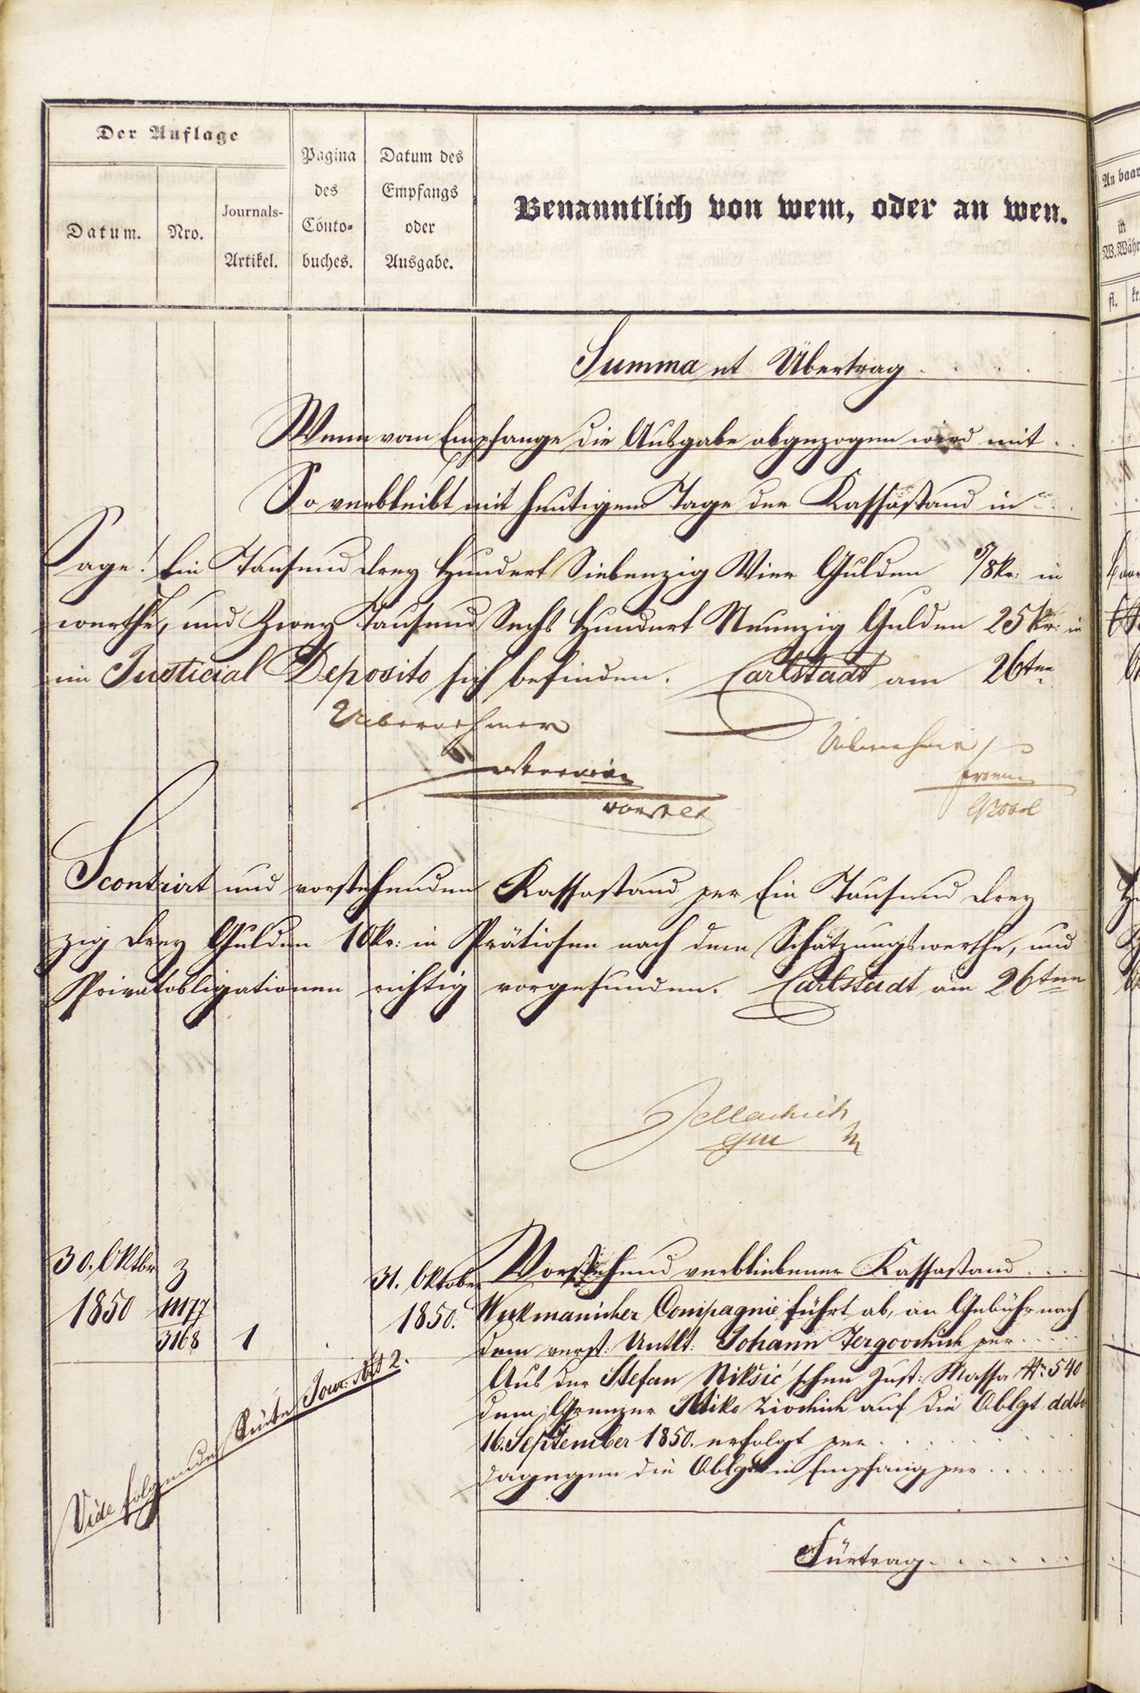 Der Auflage
Datum.
Nro.
Journals-
Artikel.
Pagina
des
Conto-
buches.
Datum des
Empfangs
oder
Ausgabe.
Benanntlich von wem, oder an wen.
An baar
in
W. Währ
fl. kr.
Summa ut Übertrag . . . .
Wenn vom Empfange die Ausgabe abgezogen wird mit . .
So verbleibt mit heutigem Tage der Kassastand in . .
Sage! Ein Tausend drey Hundert Siebenzig Vier Gulden 6/8 kr: in
werthe, und Zwey Tausend Sechs Hundert Neunzig Gulden 25 kr: in
im Justicial Deposito sich befinden. Carlstadt am 26ten
Uibernehmer
Scontrirt und vorstehenden Kassastand per Ein Tausend drey
zig drey Gulden 10 kr: in Prätiosen nach dem Schätzungswerthe, und
Privatobligationen richtig vorgefunden. Carlstadt am 26ten
Jellachich
GM
30. Oktbr
1850
3168
1
31. Oktober
1850.
Vorstehend verbliebener Kassastand . . . .
Wukmanicher Compagnie führt ab, an Gebühr nach
dem verst: Untlt: Johann Tergovchich per . . . .
Aus der Stefan Nikšić'schen Just: Massa No 540
dem Grenzer Miko auf die Oblgt ddto
16. September 1850. erfolgt per . . . .
dagegen die Oblgt in Empfang per . . . .
Vide folgende Seite Jour: Art 2.
Fürtrag . . . . . .